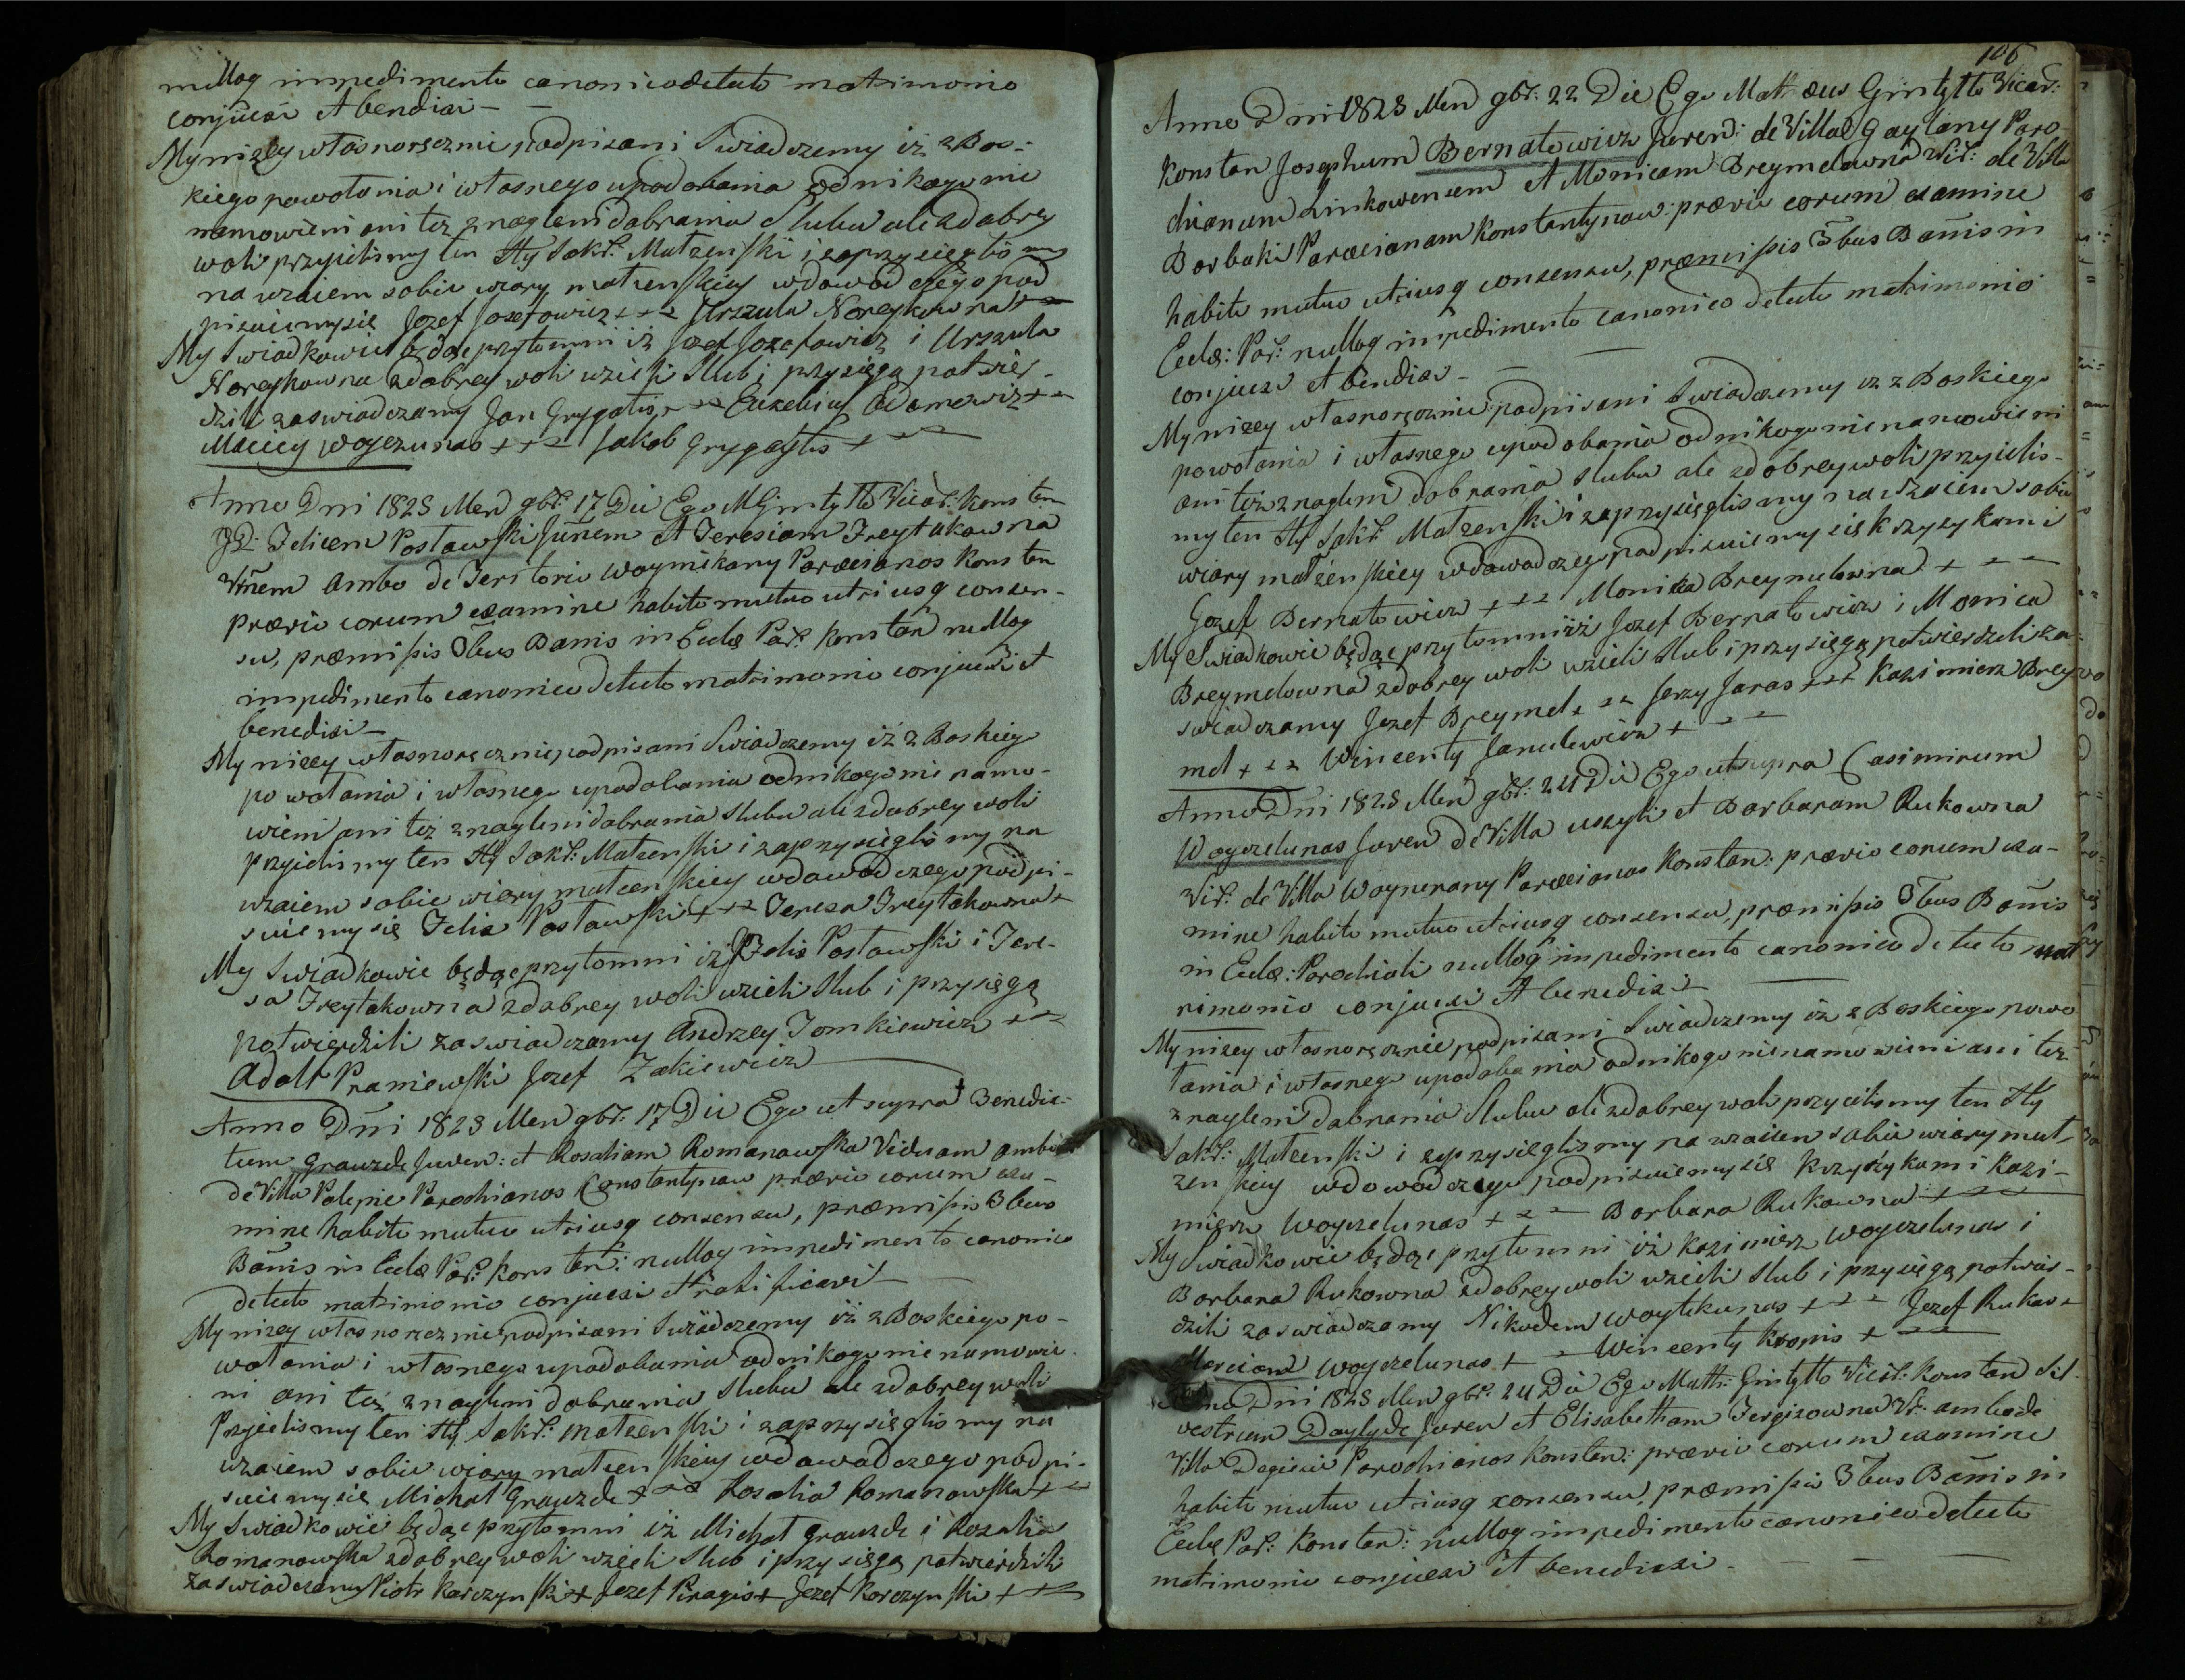 nullog impedimento canonico detecto matrimonio
conjuxi et bendixi —
My niżey własnoręcznie podpisani Swiadczemy iż z Bos-
kiego powołania i własnego upodobania od nikogo nie
namowieni ani też znagleni dobrania Slubu ale zdobrey
woli przyielismy ten Sty Sakr: Małzenski i zaprzysięglismy
na wzaiem sobie wiary małzenskiey wdowod czego pod
pisuiemy się Jozef Jozefowicz +++ Urszula Noreykowna +
My Swiadkowie będąc przytomni iż Jozef Jozefowicz i Urszula
Noreykowna zdobrey woli wzieli Slub i przysięgą potwier-
dzili zaswiadczamy Jan Grygalis + Euzebiusz Adamowicz ++
Maciey Woyczunas +++ Jakob Grygalis +
Anno Dni 1823 Men 9br: 17 Die Ego M Gintyłło Vicar: Konstan
GD Felicem Postawski Junem et Teresiam Freytakowna
Virem Ambo de Teritorio Woynikany Paræcianos Konstan
prævio eorum examine habito mutuo utriusq consen-
su, præmissis 3bus Bannis in Ecclæ Par: Konstan nullog
impedimento canonico detecto matrimonio conjuxi et
benedixi —
My niżey własnoręcznie podpisani Swiadczemy iż z Boskiego
powołania i własnego upodobania od nikogo nie namo-
wieni ani też znagleni dobrania Slubu ale zdobrey woli
przyielismy ten Sty Sakr: Małzenski i zaprzysięglismy na
wzaiem sobie wiary małzenskiey wdowod czego podpi-
suiemy się Felix Postawski +++ Teresa Freytakowna +
My Swiadkowie będąc przytomni iż Felix Postawski i Tere-
sa Freytakowna zdobrey woli wzieli Slub i przysięgą
potwierdzili zaswiadczamy Andrzey Tomkiewicz ++
Adolf Praniewski Jozef Zakiewicz
Anno Dni 1823 Men 9br: 17 Die Ego ut supra Benedic-
tum Grauzde Juven: et Rosaliam Romanowska Viduam ambo
de Villa Palepie Parochianos Konstantynow prævio eorum exa-
mine habito mutuo utriusq consensu, præmissis 3bus
Bannis in Ecclæ Par: Konstan: nullog impedimento canonico
detecto matrimonio conjuxi et ratificavi
My niżey własnoręcznie podpisani Swiadczemy iż z Boskiego po-
wołania i własnego upodobania od nikogo nie namowie-
ni ani też znagleni dobrania Slubu ale zdobrey woli
Przyielismy ten Sty Sakr: małzenski i zaprzysięglismy na
wzaiem sobie wiary małzenskiey wdowod czego podpi-
suiemy się Michał Grauzde +++ Rosalia Romanowska ++
My Swiadkowie będąc przytomni iż Michał Grauzde i Rozalia
Romanowska zdobrey woli wzieli Slub i przysięgą potwierdzili
zaswiadczamy Piotr Karczynski + Jozef Piragis + Jozef Korczynski ++
106
Anno Dni 1823 Men 9br: 22 Die Ego Mathæus Gintyłło Vicar:
Konstan Josephum Bernatowicz Juven: de Villa Gaylany Paro
chianum Linkowensem et Monicam Breymelowna Vir: de Villa
Borbuki Paræcianam Konstantynow: prævio eorum examine
habito mutuo utriusq consensu, præmissis 3bus Bannis in
Ecclæ: Par: nullog impedimento canonico detecto matrimonio
conjuxi et bendixi —
My niżey własnoręcznie podpisani Swiadczemy iż z Boskiego
powołania i własnego upodobania od nikogo nie namowieni
ani też znagleni dobrania Slubu ale zdobrey woli przyielis-
my ten Sty Sakr: Małzenski i zaprzysięglismy na wzaiem sobie
wiary małżenskiey wdowod czego podpisuiemy się krzyżykami
Jozef Bernatowicz +++ Monika Breymelowna +
My Swiadkowie będąc przytomni iż Jozef Bernatowicz i Monica
Breymelowna zdobrey woli wzieli Slub i przysięgą potwierdzili za-
swiadczamy Jozef Breymel + Jerzy Jaras +++ Kazimierz Brey
mel +++ Wincenty Janulewicz +
Anno Dni 1823 Men 9br: 24 Die Ego ut supra Casimirum
Woyczelunas Juven de Villa uszyli et Barbaram Rukowna
Vir: de Villa Woynerany Paræcianos Konstan: prævio eorum exa-
mine habito mutuo utriusq consensu, præmissis 3bus Bannis
in Ecclæ: Parochiali nullog impedimento canonico detecto mat
rimonio conjuxi et benedixi
My niżey własnoręcznie podpisani Swiadczemy iż z Boskiego powo
łania i własnego upodobania od nikogo nie namowieni ani też
znagleni dobrania Slubu ale zdobrey woli przyielismy ten Sty
Sakr: Małzenski i zaprzysięglismy na wzaiem sobie wiary mał-
zenskiey wdowod czego podpisuiemy się krzyżykami Kazi-
mierz Woyczelunas +++ Barbara Rukowna +
My Swiadkowie będąc przytomni iż Kazimierz Woyczelunas i
Barbara Rukowna zdobrey woli wzieli Slub i przysięgą potwier-
dzili zaswiadczamy Nikodem Woytkunas +++ Jozef Rukas +
Marcian Woyczelunas + Wincenty Kropis +
Anno Dni 1823 Men 9br: 24 Die Ego Math: Gintyłło Vicar: Konstan Sil
vestrum Daylyde Juven et Elisabetham Jergizowna Vir: ambo de
Villa Degiecie Parochianos Konstan: prævio eorum examine
habito mutuo utriusq consensu, præmissis 3bus Bannis in
Ecclæ Par: Konstan: nullog impedimento canonico detecto
matrimonio conjuxi et benedixi